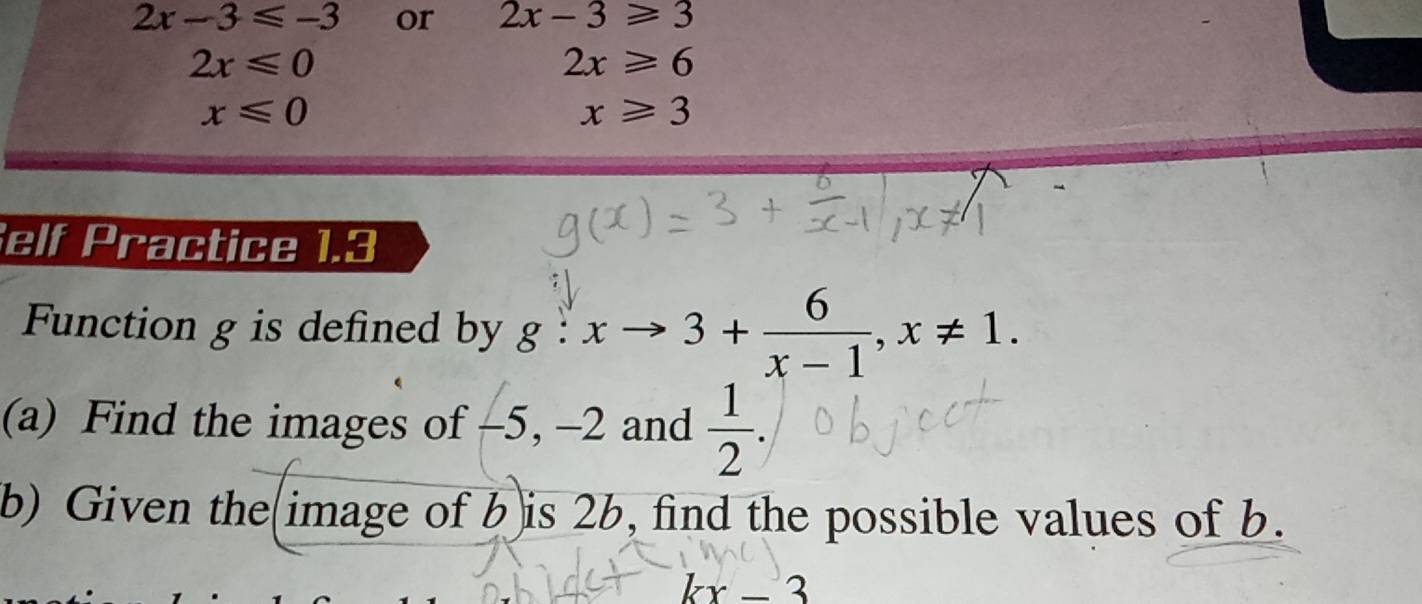 2x – 3 ⩽ –3 or 2x – 3 ⩾ 3
2x ⩽ 0 2x ⩾ 6
x ⩽ 0 x ⩾ 3
g(x) = 3 + 6/x-1, x ≠ 1
elf Practice 1.3
Function g is defined by g : x → 3 + 6/(x – 1), x ≠ 1.
(a) Find the images of –5, –2 and 1/2. object
b) Given the image of b is 2b, find the possible values of b.
object
kx – 3